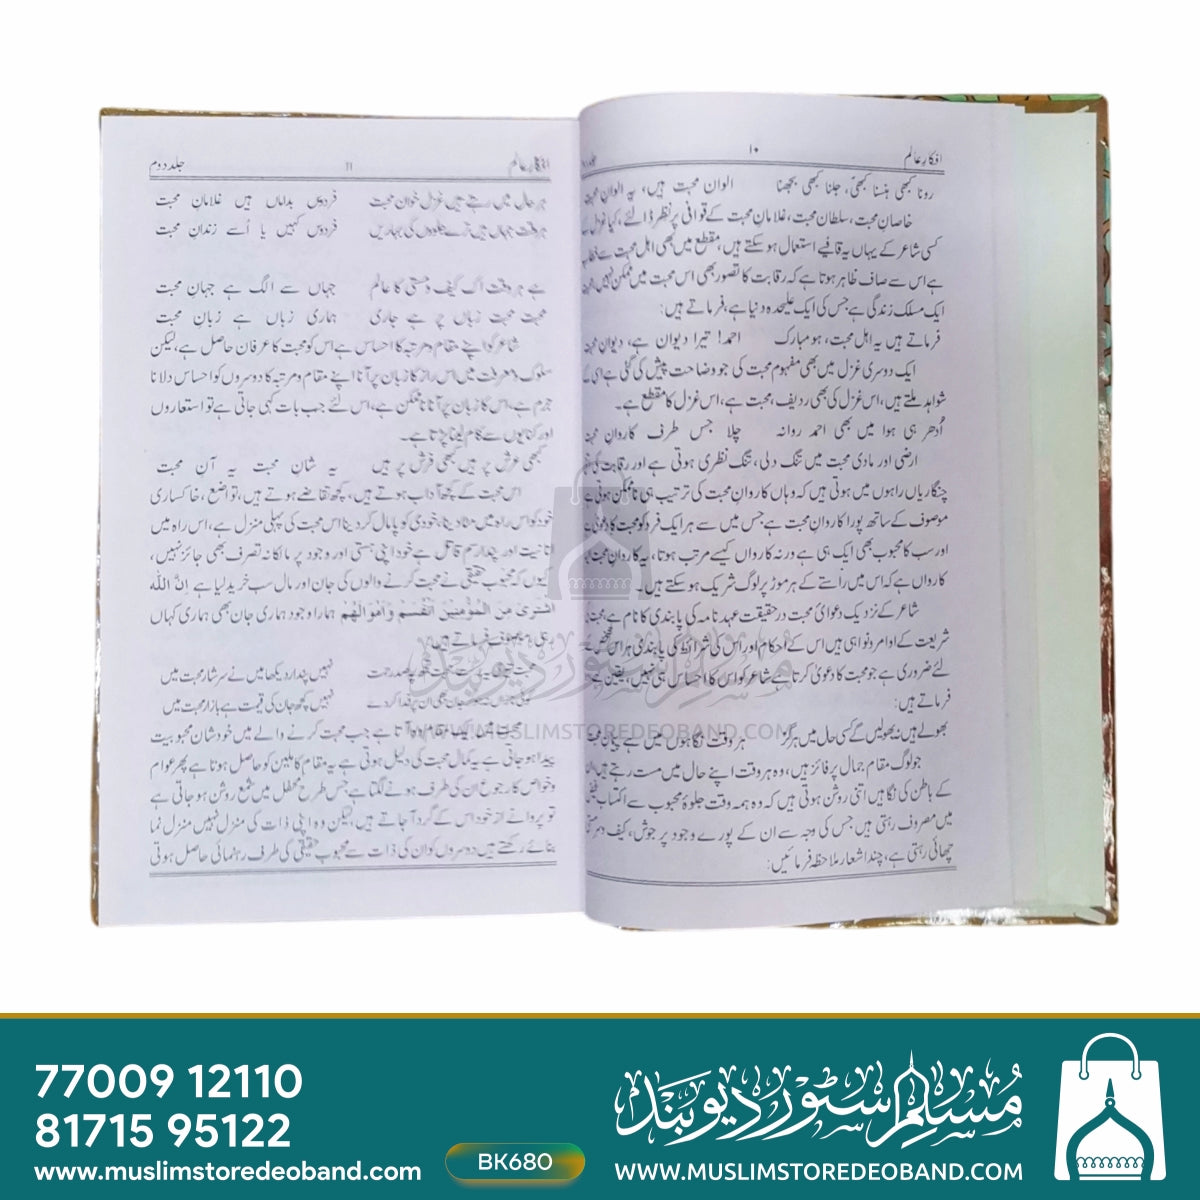 افکارِ عالم
۱۰
رونا کبھی ہنسنا کبھی، جلنا کبھی بجھنا الوان محبت ہیں، یہ الوانِ
خاصانِ محبت، سلطان محبت، غلامانِ محبت کے قوافی پر نظر ڈالئے، کیا غزل
کسی شاعر کے یہاں یہ قافیے استعمال ہو سکتے ہیں، مقطع میں بھی اہل محبت
ہے اس سے صاف ظاہر ہوتا ہے کہ رقابت کا تصور بھی اس محبت میں ممکن نہیں
ایک مسلک زندگی ہے جس کی ایک علیحدہ دنیا ہے، فرماتے ہیں:
فرماتے ہیں یہ اہل محبت، ہو مبارک احمد! تیرا دیوان ہے، دیوانِ
ایک دوسری غزل میں بھی مفہوم محبت کی جو وضاحت پیش کی گئی ہے
شواہد ملتے ہیں، اس غزل کی بھی ردیف، محبت ہے، اس غزل کا مقطع ہے۔
اُدھر ہی ہوا میں بھی احمد روانہ چلا جس طرف کاروانِ
ارضی اور مادی محبت میں تنگ دلی، تنگ نظری ہوتی ہے اور رقابت کی
چنگاریاں راہوں میں ہوتی ہیں کہ وہاں کاروانِ محبت کی ترتیب ہی ناممکن ہوتی ہے
موصوف کے ساتھ پورا کاروانِ محبت ہے جس میں سے ہر ایک فرد کو محبت کا دعویٰ
اور سب کا محبوب بھی ایک ہی ہے ورنہ کارواں کیسے مرتب ہوتا، یہ کاروانِ محبت
کارواں ہے کہ اس میں راستے کے ہر موڑ پر لوگ شریک ہو سکتے ہیں۔
شاعر کے نزدیک دعوائ محبت در حقیقت عہد نامہ کی پابندی کا نام ہے،
شریعت کے اوامر و نواہی ہیں اس کے احکام اور اس کی شرائط کی پابندی ہر اس
لئے ضروری ہے جو محبت کا دعویٰ کرتا ہے شاعر کو اس کا احساس ہی نہیں، یقین
فرماتے ہیں:
بھولے ہیں نہ بھولیں گے کسی حال میں ہرگز ہر وقت نگاہوں میں ہے
جو لوگ مقام جمال پر فائز ہیں، وہ ہر وقت اپنے حال میں مست رہتے ہیں
کے باطن کی نگاہیں اتنی روشن ہوتی ہیں کہ وہ ہمہ وقت جلوۂ محبوب سے اکتساب
میں مصروف رہتی ہیں جس کی وجہ سے ان کے پورے وجود پر جوش، کیف و
چھائی رہتی ہے، چند اشعار ملاحظہ فرمائیں:
افکارِ عالم
۱۱
جلد دوم
ہر حال میں رہتے ہیں غزل خوان محبت فردوس بداماں ہیں غلامانِ محبت
ہر وقت جہاں ہیں ترے جلووں کی بہاریں فردوس کہیں یا اُسے زندانِ محبت
ہے ہر وقت اک کیف و مستی کا عالم جہاں سے الگ ہے جہانِ محبت
محبت محبت زباں پر ہے جاری ہماری زباں ہے زبانِ محبت
شاعر کو اپنے مقام و مرتبہ کا احساس ہے اس کو محبت کا عرفان حاصل ہے، لیکن
سلوک و معرفت میں اس راز کا زبان پر آنا اپنے مقام و مرتبہ کا دوسروں کو احساس دلانا
جرم ہے، اس کا زبان پر آنا ناممکن ہے، اس لئے جب بات کہی جاتی ہے تو استعاروں
اور کنایوں سے کام لینا پڑتا ہے۔
کبھی عرش پر ہیں کبھی فرش پر ہیں یہ شان محبت یہ آن محبت
اس محبت کے کچھ آداب ہوتے ہیں، کچھ تقاضے ہوتے ہیں، تواضع، خاکساری
خود کو اس راہ میں مٹا دینا، خودی کو پامال کر دینا اس محبت کی پہلی منزل ہے، اس راہ میں
انانیت اور پندار سم قاتل ہے خود اپنی ہستی اور وجود پر مالکانہ تصرف بھی جائز نہیں،
کیوں کہ محبوب حقیقی نے محبت کرنے والوں کی جان اور مال سب خرید لیا ہے اِنَّ اللّٰهَ
اشْتَرىٰ مِنَ الْمُؤْمِنِيْنَ اَنْفُسَهُمْ وَاَمْوَالَهُمْ ہمارا وجود ہماری جان بھی ہماری کہاں
نہیں پندار دیکھا میں نے سرشار محبت میں
نہیں کچھ جان کی قیمت ہے بازار محبت میں
آتا ہے جب محبت کرنے والے میں خود شان محبوبیت
پیدا ہو جاتی ہے یہ کمال محبت کی دلیل ہوتی ہے یہ مقام کاملین کو حاصل ہوتا ہے پھر عوام
و خواص کا رجوع ان کی طرف ہونے لگتا ہے جس طرح محفل میں شمع روشن ہو جاتی ہے
تو پروانے از خود اس کے گرد آ جاتے ہیں، لیکن وہ اپنی ذات کی منزل نہیں منزل نما
بنائے رکھتے ہیں دوسروں کو ان کی ذات سے محبوب حقیقی کی طرف رہنمائی حاصل ہوتی
مسلم سٹور دیوبند
WWW.MUSLIMSTOREDEOBAND.COM
77009 12110
81715 95122
www.muslimstoredeoband.com
BK680
مسلم سٹور دیوبند
WWW.MUSLIMSTOREDEOBAND.COM